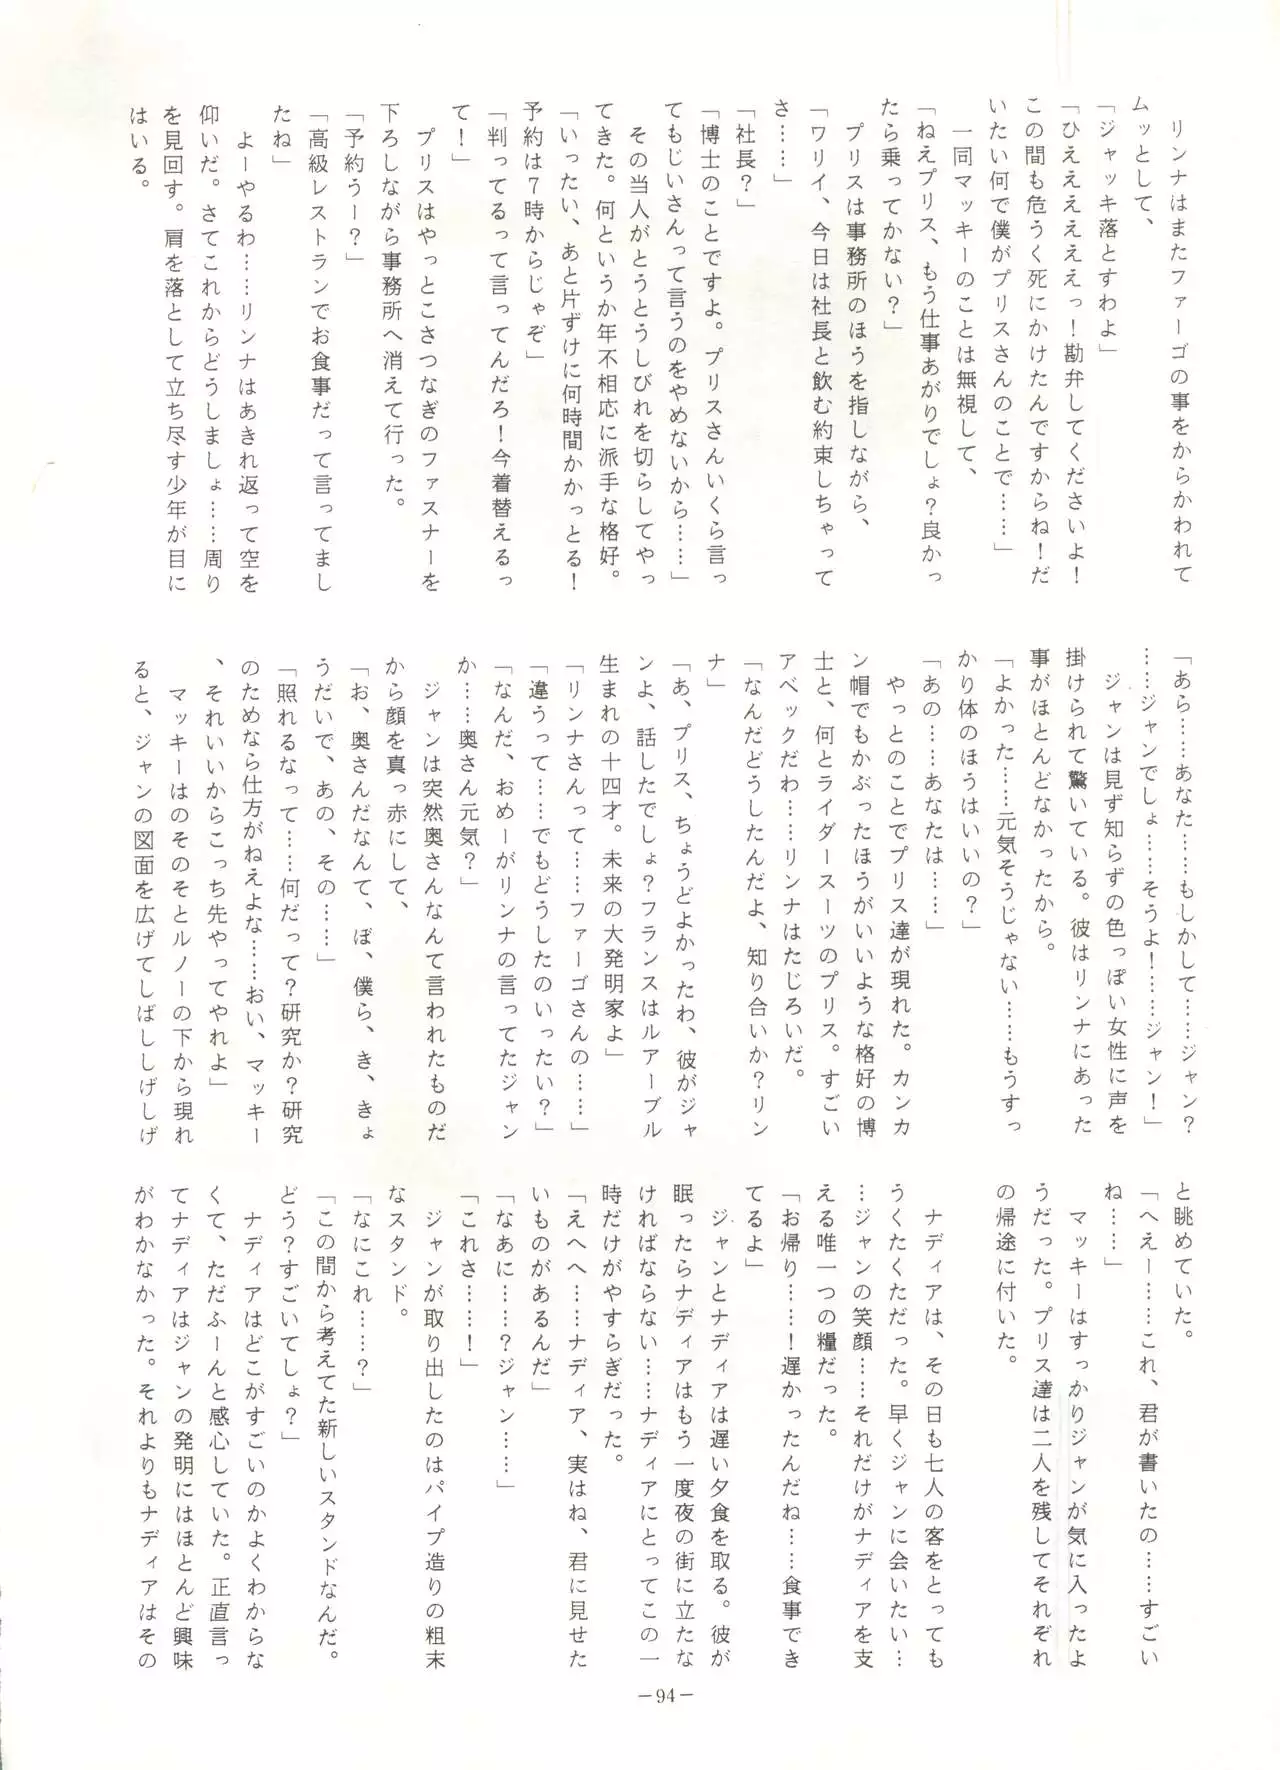 リンナはまたファーゴの事をからかわれて
ムッとして、
「ジャッキ落とすわよ」
「ひええええええっ！勘弁してくださいよ！
この間も危うく死にかけたんですからね！だ
いたい何で僕がプリスさんのことで……」
　一同マッキーのことは無視して、
「ねえプリス、もう仕事あがりでしょ？良かっ
たら乗ってかない？」
　プリスは事務所のほうを指しながら、
「ワリイ、今日は社長と飲む約束しちゃって
さ……」
「社長？」
「博士のことですよ。プリスさんいくら言っ
てもじいさんって言うのをやめないから……」
　その当人がとうとうしびれを切らしてやっ
てきた。何というか年不相応に派手な格好。
「いったい、あと片ずけに何時間かかっとる！
予約は７時からじゃぞ」
「判ってるって言ってんだろ！今着替えるっ
て！」
　プリスはやっとこさつなぎのファスナーを
下ろしながら事務所へ消えて行った。
「予約うー？」
「高級レストランでお食事だって言ってまし
たね」
　よーやるわ……リンナはあきれ返って空を
仰いだ。さてこれからどうしましょ……周り
を見回す。肩を落として立ち尽す少年が目に
はいる。
「あら……あなた……もしかして……ジャン？
……ジャンでしょ……そうよ！……ジャン！」
　ジャンは見ず知らずの色っぽい女性に声を
掛けられて驚いている。彼はリンナにあった
事がほとんどなかったから。
「よかった……元気そうじゃない……もうすっ
かり体のほうはいいの？」
「あの……あなたは……」
　やっとのことでプリス達が現れた。カンカ
ン帽でもかぶったほうがいいような格好の博
士と、何とライダースーツのプリス。すごい
アベックだわ……リンナはたじろいだ。
「なんだどうしたんだよ、知り合いか？リン
ナ」
「あ、プリス、ちょうどよかったわ、彼がジャ
ンよ、話したでしょ？フランスはルアーブル
生まれの十四才。未来の大発明家よ」
「リンナさんって……ファーゴさんの……」
「違うって……でもどうしたのいったい？」
「なんだ、おめーがリンナの言ってたジャン
か……奥さん元気？」
　ジャンは突然奥さんなんて言われたものだ
から顔を真っ赤にして、
「お、奥さんだなんて、ぼ、僕ら、き、きょ
うだいで、あの、その……」
「照れるなって……何だって？研究か？研究
のためなら仕方がねえよな……おい、マッキー
、それいいからこっち先やってやれよ」
　マッキーはのそのそとルノーの下から現れ
ると、ジャンの図面を広げてしばししげしげ
と眺めていた。
「へえー……これ、君が書いたの……すごい
ね……」
　マッキーはすっかりジャンが気に入ったよ
うだった。プリス達は二人を残してそれぞれ
の帰途に付いた。

　ナディアは、その日も七人の客をとっても
うくたくただった。早くジャンに会いたい…
…ジャンの笑顔……それだけがナディアを支
える唯一つの糧だった。
「お帰り……！遅かったんだね……食事でき
てるよ」
　ジャンとナディアは遅い夕食を取る。彼が
眠ったらナディアはもう一度夜の街に立たな
ければならない……ナディアにとってこの一
時だけがやすらぎだった。
「えへへ……ナディア、実はね、君に見せた
いものがあるんだ」
「なあに……？ジャン……」
「これさ……！」
　ジャンが取り出したのはパイプ造りの粗末
なスタンド。
「なにこれ……？」
「この間から考えてた新しいスタンドなんだ。
どう？すごいてしょ？」
　ナディアはどこがすごいのかよくわからな
くて、ただふーんと感心していた。正直言っ
てナディアはジャンの発明にはほとんど興味
がわかなかった。それよりもナディアはその
－94－